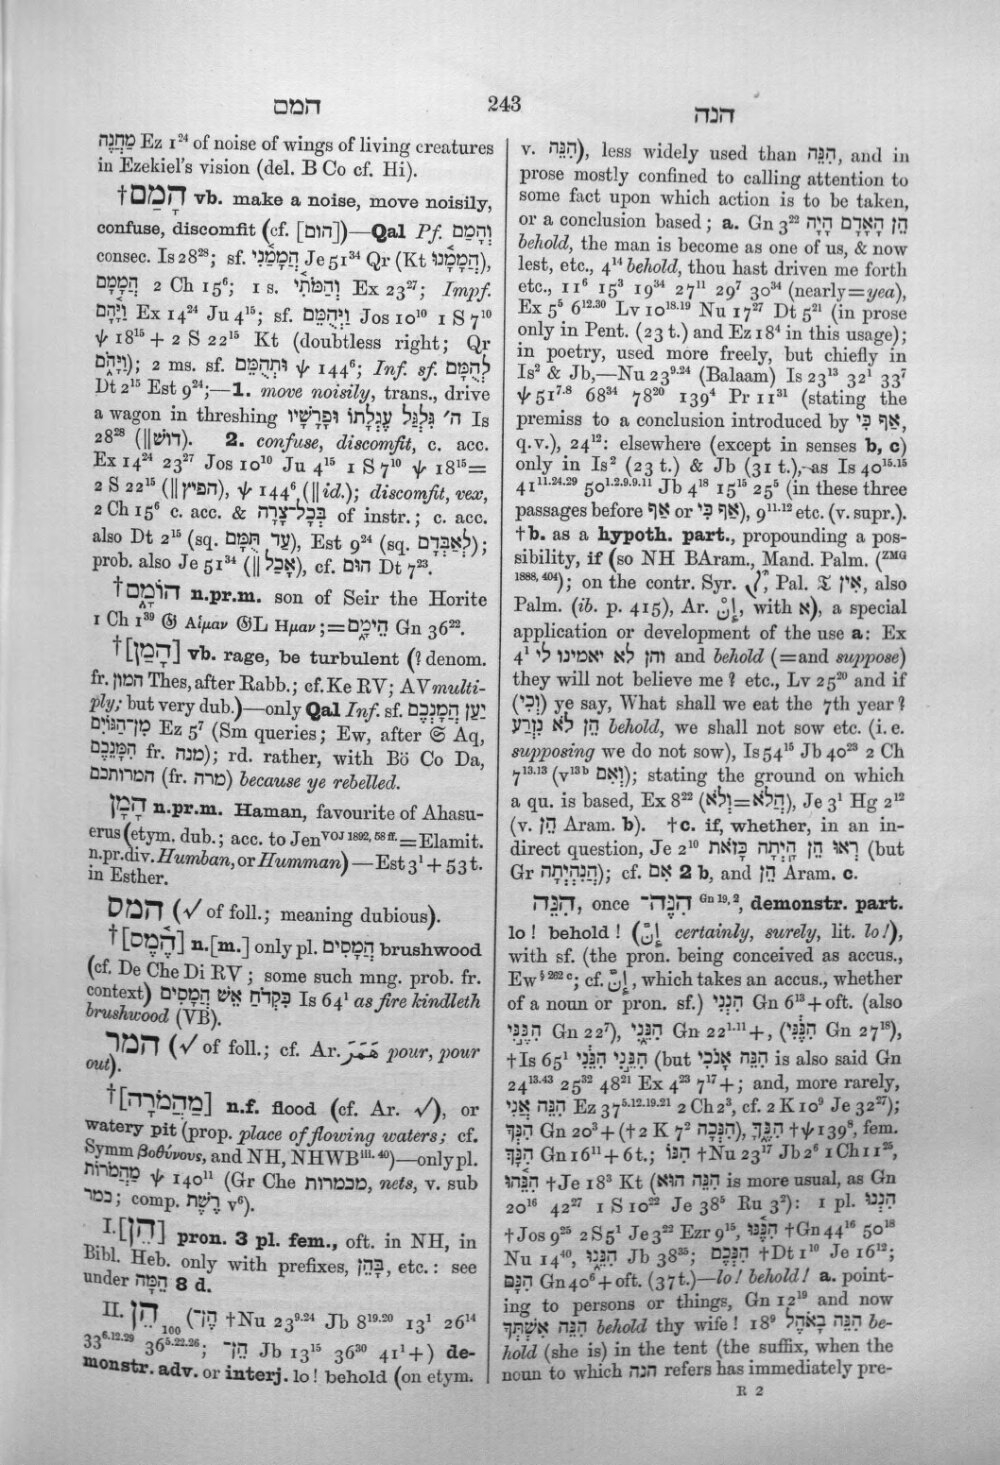 המם
243
הנה
מַחֲנֶה Ez 1²⁴ of noise of wings of living creatures
in Ezekiel's vision (del. B Co cf. Hi).
†הָמַם vb. make a noise, move noisily,
confuse, discomfit (cf. [הום])—Qal Pf. וְהָמַם
consec. Is 28²⁸; sf. הֲמָמַ֫נִי Je 51³⁴ Qr (Kt הֲמָמָ֫נוּ),
הֲמָמָם 2 Ch 15⁶; 1 s. וְהַמֹּתִ֫י Ex 23²⁷; Impf.
וַיָּ֫הָם Ex 14²⁴ Ju 4¹⁵; sf. וַיְהֻמֵּם Jos 10¹⁰ 1 S 7¹⁰
ψ 18¹⁵ + 2 S 22¹⁵ Kt (doubtless right; Qr
וַיָּהֹם); 2 ms. sf. וּתְהֻמֵּם ψ 144⁶; Inf. sf. לְהֻמָּם
Dt 2¹⁵ Est 9²⁴;—1. move noisily, trans., drive
a wagon in threshing ה׳ גִּלְגַּל עֶגְלָתוֹ וּפָרָשָׁיו Is
28²⁸ (‖דּוּשׁ). 2. confuse, discomfit, c. acc.
Ex 14²⁴ 23²⁷ Jos 10¹⁰ Ju 4¹⁵ 1 S 7¹⁰ ψ 18¹⁵=
2 S 22¹⁵ (‖הפיץ), ψ 144⁶ (‖id.); discomfit, vex,
2 Ch 15⁶ c. acc. & בְּכָל־צָרָה of instr.; c. acc.
also Dt 2¹⁵ (sq. עַד תֻּמָּם), Est 9²⁴ (sq. לְאַבְּדָם);
prob. also Je 51³⁴ (‖אָכַל), cf. הום Dt 7²³.
†הוֹמָם n.pr.m. son of Seir the Horite
1 Ch 1³⁹ 𝔊 Αἱμαν 𝔊L Ημαν;=הֵימָם Gn 36²².
†[הָמַן] vb. rage, be turbulent (? denom.
fr. המון Thes, after Rabb.; cf. Ke RV; AV multi-
ply; but very dub.)—only Qal Inf. sf. יַעַן הֲמָנְכֶם
מִן־הַגּוֹיִם Ez 5⁷ (Sm queries; Ew, after 𝔖 Aq,
הִמָּנֽוֹתְכֶם fr. מנה); rd. rather, with Bö Co Da,
המרותכם (fr. מרה) because ye rebelled.
הָמָן n.pr.m. Haman, favourite of Ahasu-
erus (etym. dub.; acc. to Jen VOJ 1892, 58 ff. =Elamit.
n.pr.div. Humban, or Humman)—Est 3¹ + 53 t.
in Esther.
המס (√ of foll.; meaning dubious).
†[הֶ֫מֶס] n.[m.] only pl. הֲמָסִים brushwood
(cf. De Che Di RV; some such mng. prob. fr.
context) כִּקְדֹחַ אֵשׁ הֲמָסִים Is 64¹ as fire kindleth
brushwood (VB).
המר (√ of foll.; cf. Ar. هَمَرَ pour, pour
out).
†[מַהֲמֹרָה] n.f. flood (cf. Ar. √), or
watery pit (prop. place of flowing waters; cf.
Symm βοθύνους, and NH, NHWB iii. 40)—only pl.
מַהֲמֹרוֹת ψ 140¹¹ (Gr Che מכמרות, nets, v. sub
כמר; comp. רֶשֶׁת v⁶).
I. [הֵן] pron. 3 pl. fem., oft. in NH, in
Bibl. Heb. only with prefixes, בָּהֵן, etc.: see
under הֵמָּה 8 d.
II. הֵן₁₀₀ (הֶן־ †Nu 23⁹·²⁴ Jb 8¹⁹·²⁰ 13¹ 26¹⁴
33⁶·¹²·²⁹ 36⁵·²²·²⁶; הֵן־ Jb 13¹⁵ 36³⁰ 41¹+) de-
monstr. adv. or interj. lo! behold (on etym.
v. הִנֵּה), less widely used than הִנֵּה, and in
prose mostly confined to calling attention to
some fact upon which action is to be taken,
or a conclusion based; a. Gn 3²² הֵן הָאָדָם הָיָה
behold, the man is become as one of us, & now
lest, etc., 4¹⁴ behold, thou hast driven me forth
etc., 11⁶ 15³ 19³⁴ 27¹¹ 29⁷ 30³⁴ (nearly=yea),
Ex 5⁵ 6¹²·³⁰ Lv 10¹⁸·¹⁹ Nu 17²⁷ Dt 5²¹ (in prose
only in Pent. (23 t.) and Ez 18⁴ in this usage);
in poetry, used more freely, but chiefly in
Is² & Jb,—Nu 23⁹·²⁴ (Balaam) Is 23¹³ 32¹ 33⁷
ψ 51⁷·⁸ 68³⁴ 78²⁰ 139⁴ Pr 11³¹ (stating the
premiss to a conclusion introduced by אַף כִּי,
q.v.), 24¹²: elsewhere (except in senses b, c)
only in Is² (23 t.) & Jb (31 t.),—as Is 40¹⁵·¹⁵
41¹¹·²⁴·²⁹ 50¹·²·⁹·⁹·¹¹ Jb 4¹⁸ 15¹⁵ 25⁵ (in these three
passages before אַף or אַף כִּי), 9¹¹·¹² etc. (v. supr.).
†b. as a hypoth. part., propounding a pos-
sibility, if (so NH BAram., Mand. Palm. (ZMG
1888, 404); on the contr. Syr. ܐܢ, Pal. 𝔗 אין, also
Palm. (ib. p. 415), Ar. إِنْ, with א), a special
application or development of the use a: Ex
4¹ והן לא יאמינו לי and behold (=and suppose)
they will not believe me? etc., Lv 25²⁰ and if
(וְכִי) ye say, What shall we eat the 7th year?
הֵן לֹא נִזְרַע behold, we shall not sow etc. (i. e.
supposing we do not sow), Is 54¹⁵ Jb 40²³ 2 Ch
7¹³·¹³ (v¹³ᵇ וְאִם); stating the ground on which
a qu. is based, Ex 8²² (וְלֹא=הֲלֹא), Je 3¹ Hg 2¹²
(v. הֵן Aram. b). †c. if, whether, in an in-
direct question, Je 2¹⁰ רְאוּ הֵן הָיְתָה כָּזֹאת (but
Gr הֲנִהְיְתָה); cf. אִם 2 b, and הֵן Aram. c.
הִנֵּה, once הִנֶּה־ Gn 19, 2, demonstr. part.
lo! behold! (إِنَّ certainly, surely, lit. lo!),
with sf. (the pron. being conceived as accus.,
Ew § 262 c; cf. إِنَّ, which takes an accus., whether
of a noun or pron. sf.) הִנְנִי Gn 6¹³+oft. (also
הִנֶּ֫נִּי Gn 22⁷), הִנֵּ֫נִי Gn 22¹·¹¹+, (הִנֶּ֫נִּי Gn 27¹⁸),
†Is 65¹ הִנֵּ֫נִי הִנֵּ֫נִי (but הִנֵּה אָנֹכִי is also said Gn
24¹³·⁴³ 25³² 48²¹ Ex 4²³ 7¹⁷+; and, more rarely,
הִנֵּה אֲנִי Ez 37⁵·¹²·¹⁹·²¹ 2 Ch 2³, cf. 2 K 10⁹ Je 32²⁷);
הִנְּךָ Gn 20³+(†2 K 7² הִנְּכָה), הִנֶּ֑ךָּ †ψ 139⁸, fem.
הִנָּךְ Gn 16¹¹+6 t.; הִנּוֹ †Nu 23¹⁷ Jb 2⁶ 1 Ch 11²⁵,
הִנֵּ֫הוּ †Je 18³ Kt (הִנֵּה הוּא is more usual, as Gn
20¹⁶ 42²⁷ 1 S 10²² Je 38⁵ Ru 3²): 1 pl. הִנְנוּ
†Jos 9²⁵ 2 S 5¹ Je 3²² Ezr 9¹⁵, הִנֶּ֫נּוּ †Gn 44¹⁶ 50¹⁸
Nu 14⁴⁰, הִנֵּ֫נוּ Jb 38³⁵; הִנְּכֶם †Dt 1¹⁰ Je 16¹²;
הִנָּם Gn 40⁶+oft. (37 t.)—lo! behold! a. point-
ing to persons or things, Gn 12¹⁹ and now
הִנֵּה אִשְׁתְּךָ behold thy wife! 18⁹ הִנֵּה בָאֹהֶל be-
hold (she is) in the tent (the suffix, when the
noun to which הנה refers has immediately pre-
R 2